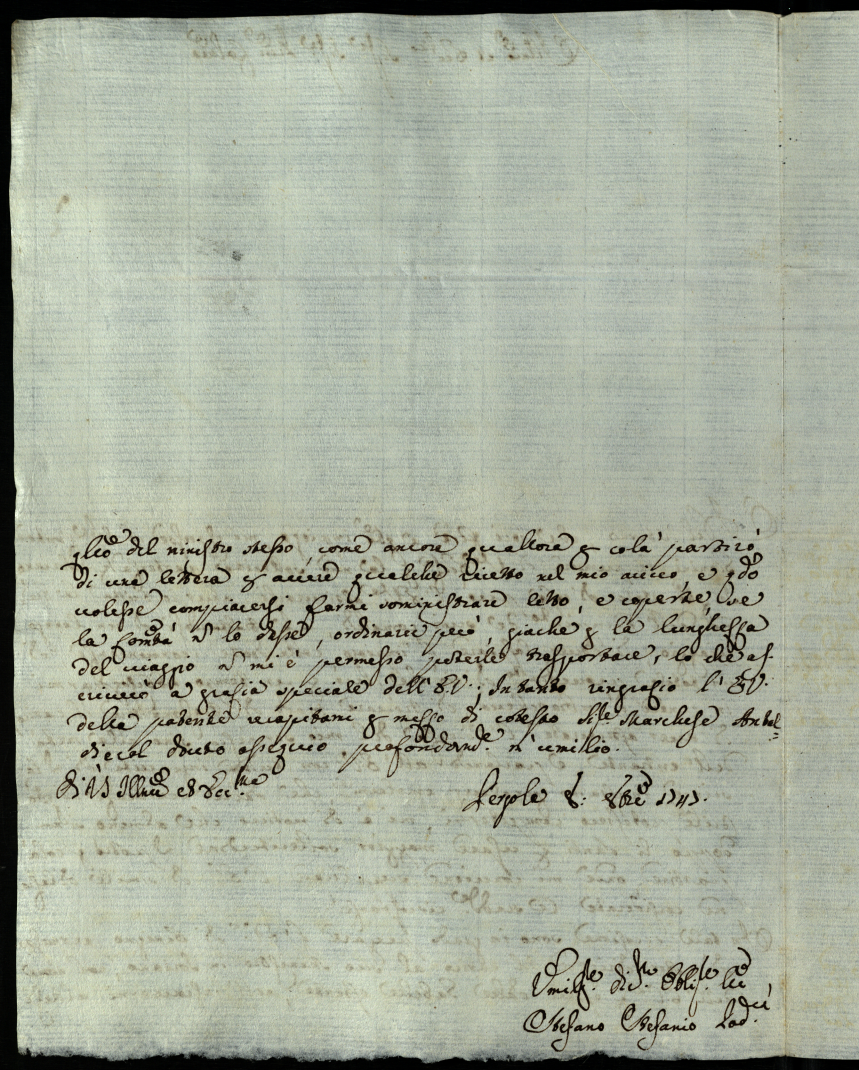 del ministro stesso, come ancora qualtora p colà partirò
di una lettera p avere qualche ricetto nel mio arrivo, e qdo
volesse compiacersi farmi somministrare letto, e coperte, se
la Comtà ñ lo desse, ordinarie però, giache p la lunghezza
del viaggio ñ mi è permesso poterle trasportare, lo che as-
criverò a grazia speciale dell'E.V.; Intanto ringrazio l'E.V.
della patente recapitami p messo di cotesto Sigre Marchese Antal=
di e col dovuto ossequio profondamte m'umilio.
di V.S. Illma ed Ecc.ma
Pergola 8: 8bre 1747.
Umiliss.e di.mo Obliss.e
Stefano Stefanio